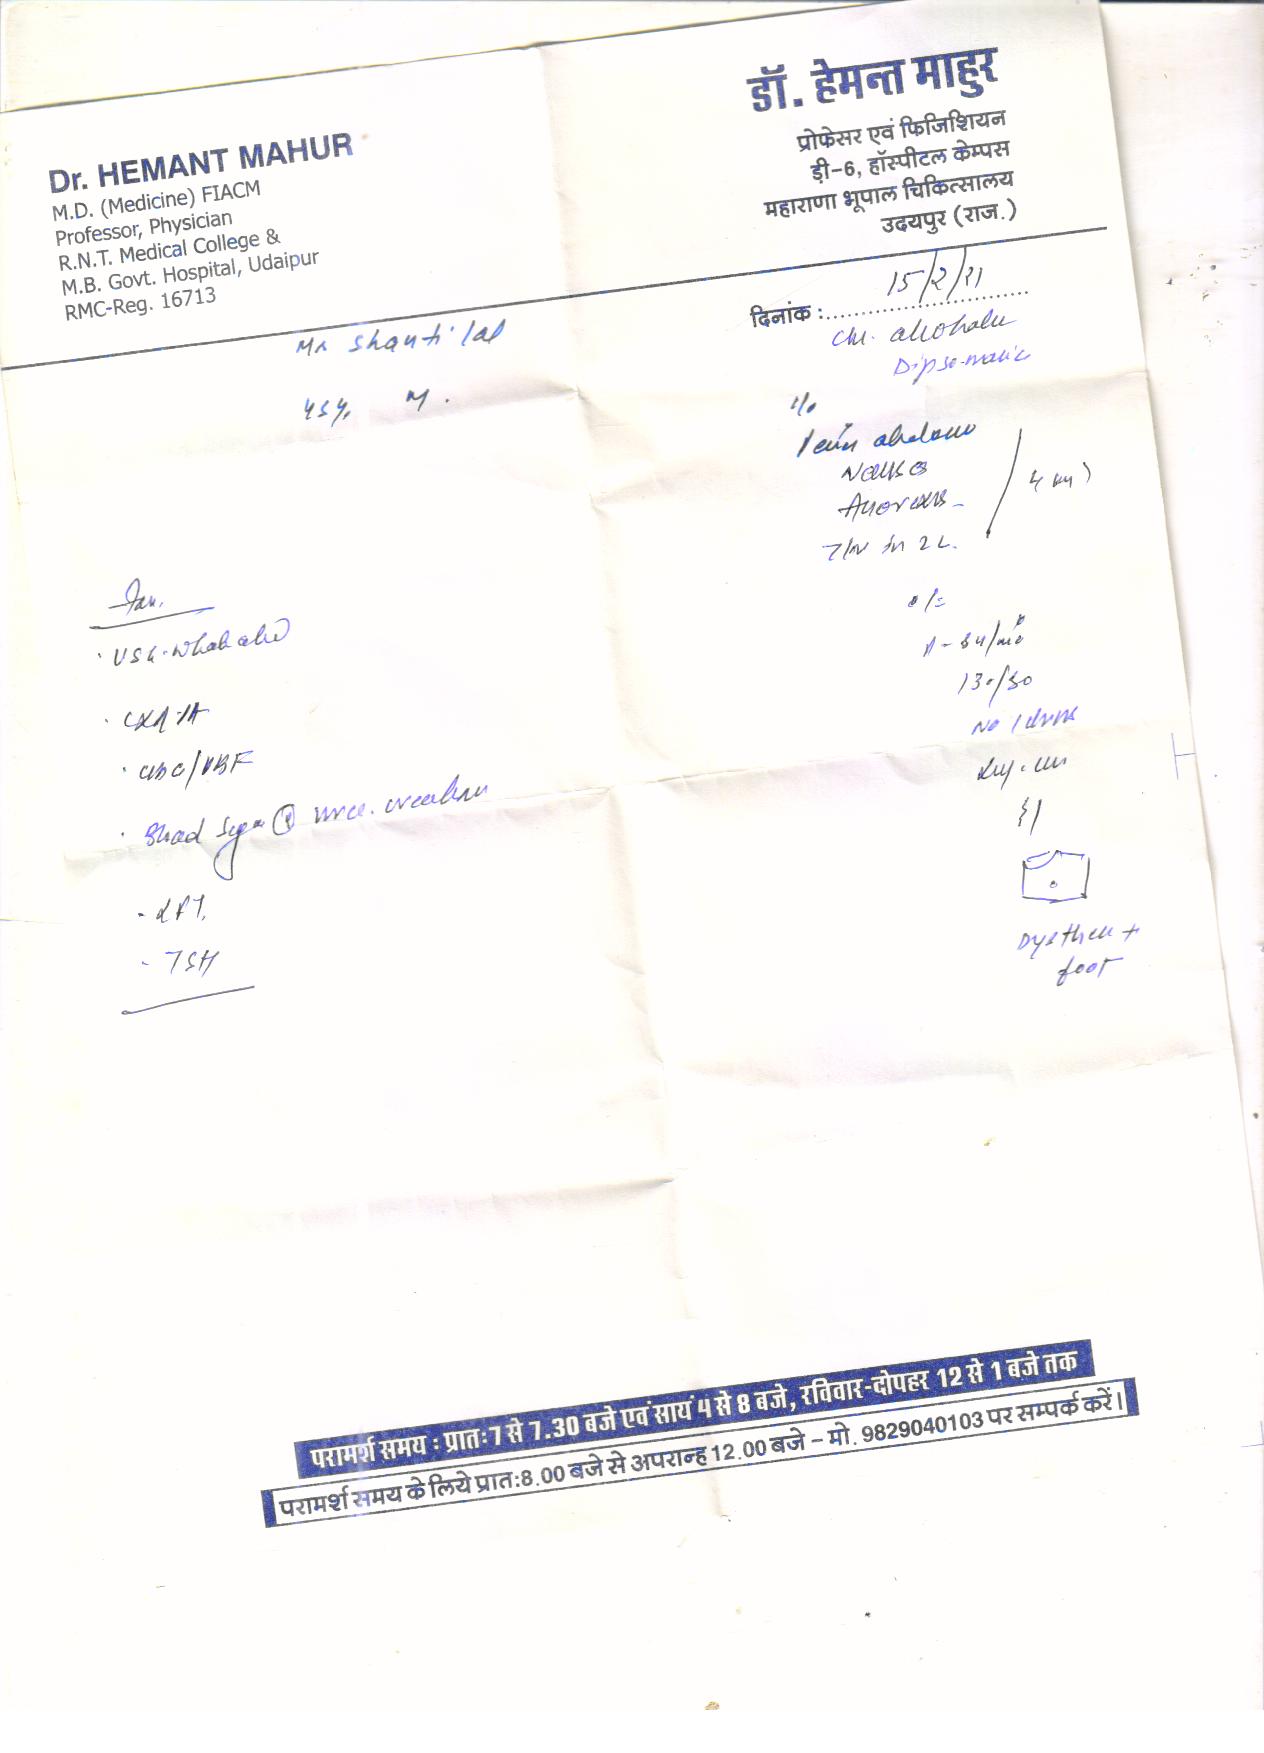 डॉ. हेमन्त माहुर
प्रोफेसर एवं फिजिशियन
डी-6, हॉस्पीटल केम्पस
महाराणा भूपाल चिकित्सालय
उदयपुर (राज.)
Dr. HEMANT MAHUR
M.D. (Medicine) FIACM
Professor, Physician
R.N.T. Medical College &
M.B. Govt. Hospital, Udaipur
RMC-Reg. 16713
दिनांक : 15/2/21
Mr Shanti lal
45y. M.
Chr. alcoholic
Dipsomanic
c/o
Pain abdomen
Nausea
Anorexia
T/N in 2 L.
O/E
P - 84/min
130/80
No
Inv.
USG - Whole abd
CXR PA
CBC/PBF
Blood Sugar urea. creatinine
- LFT.
- TSH
foot
परामर्श समय : प्रातः7 से 7.30 बजे एवं सायं 4 से 8 बजे, रविवार-दोपहर 12 से 1 बजे तक
परामर्श समय के लिये प्रात:8.00 बजे से अपरान्ह 12.00 बजे – मो. 9829040103 पर सम्पर्क करें।